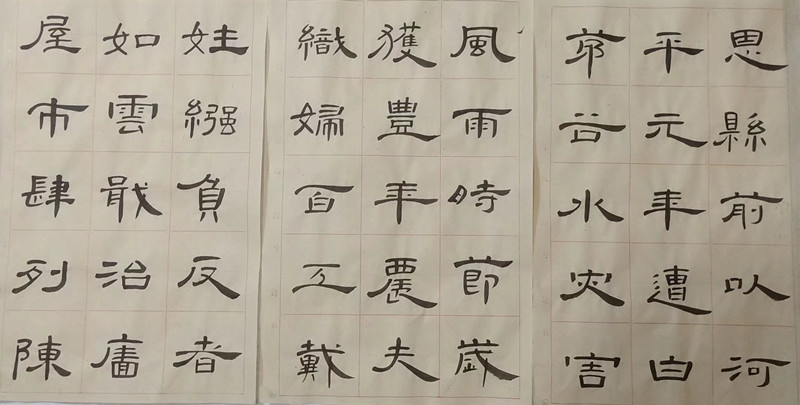 姓繦負反者
如雲戢治廧
屋市肆列陳
風雨時節歲
獲豐年農夫
織婦百工戴
恩縣前以河
平元年遭白
茅谷水災害